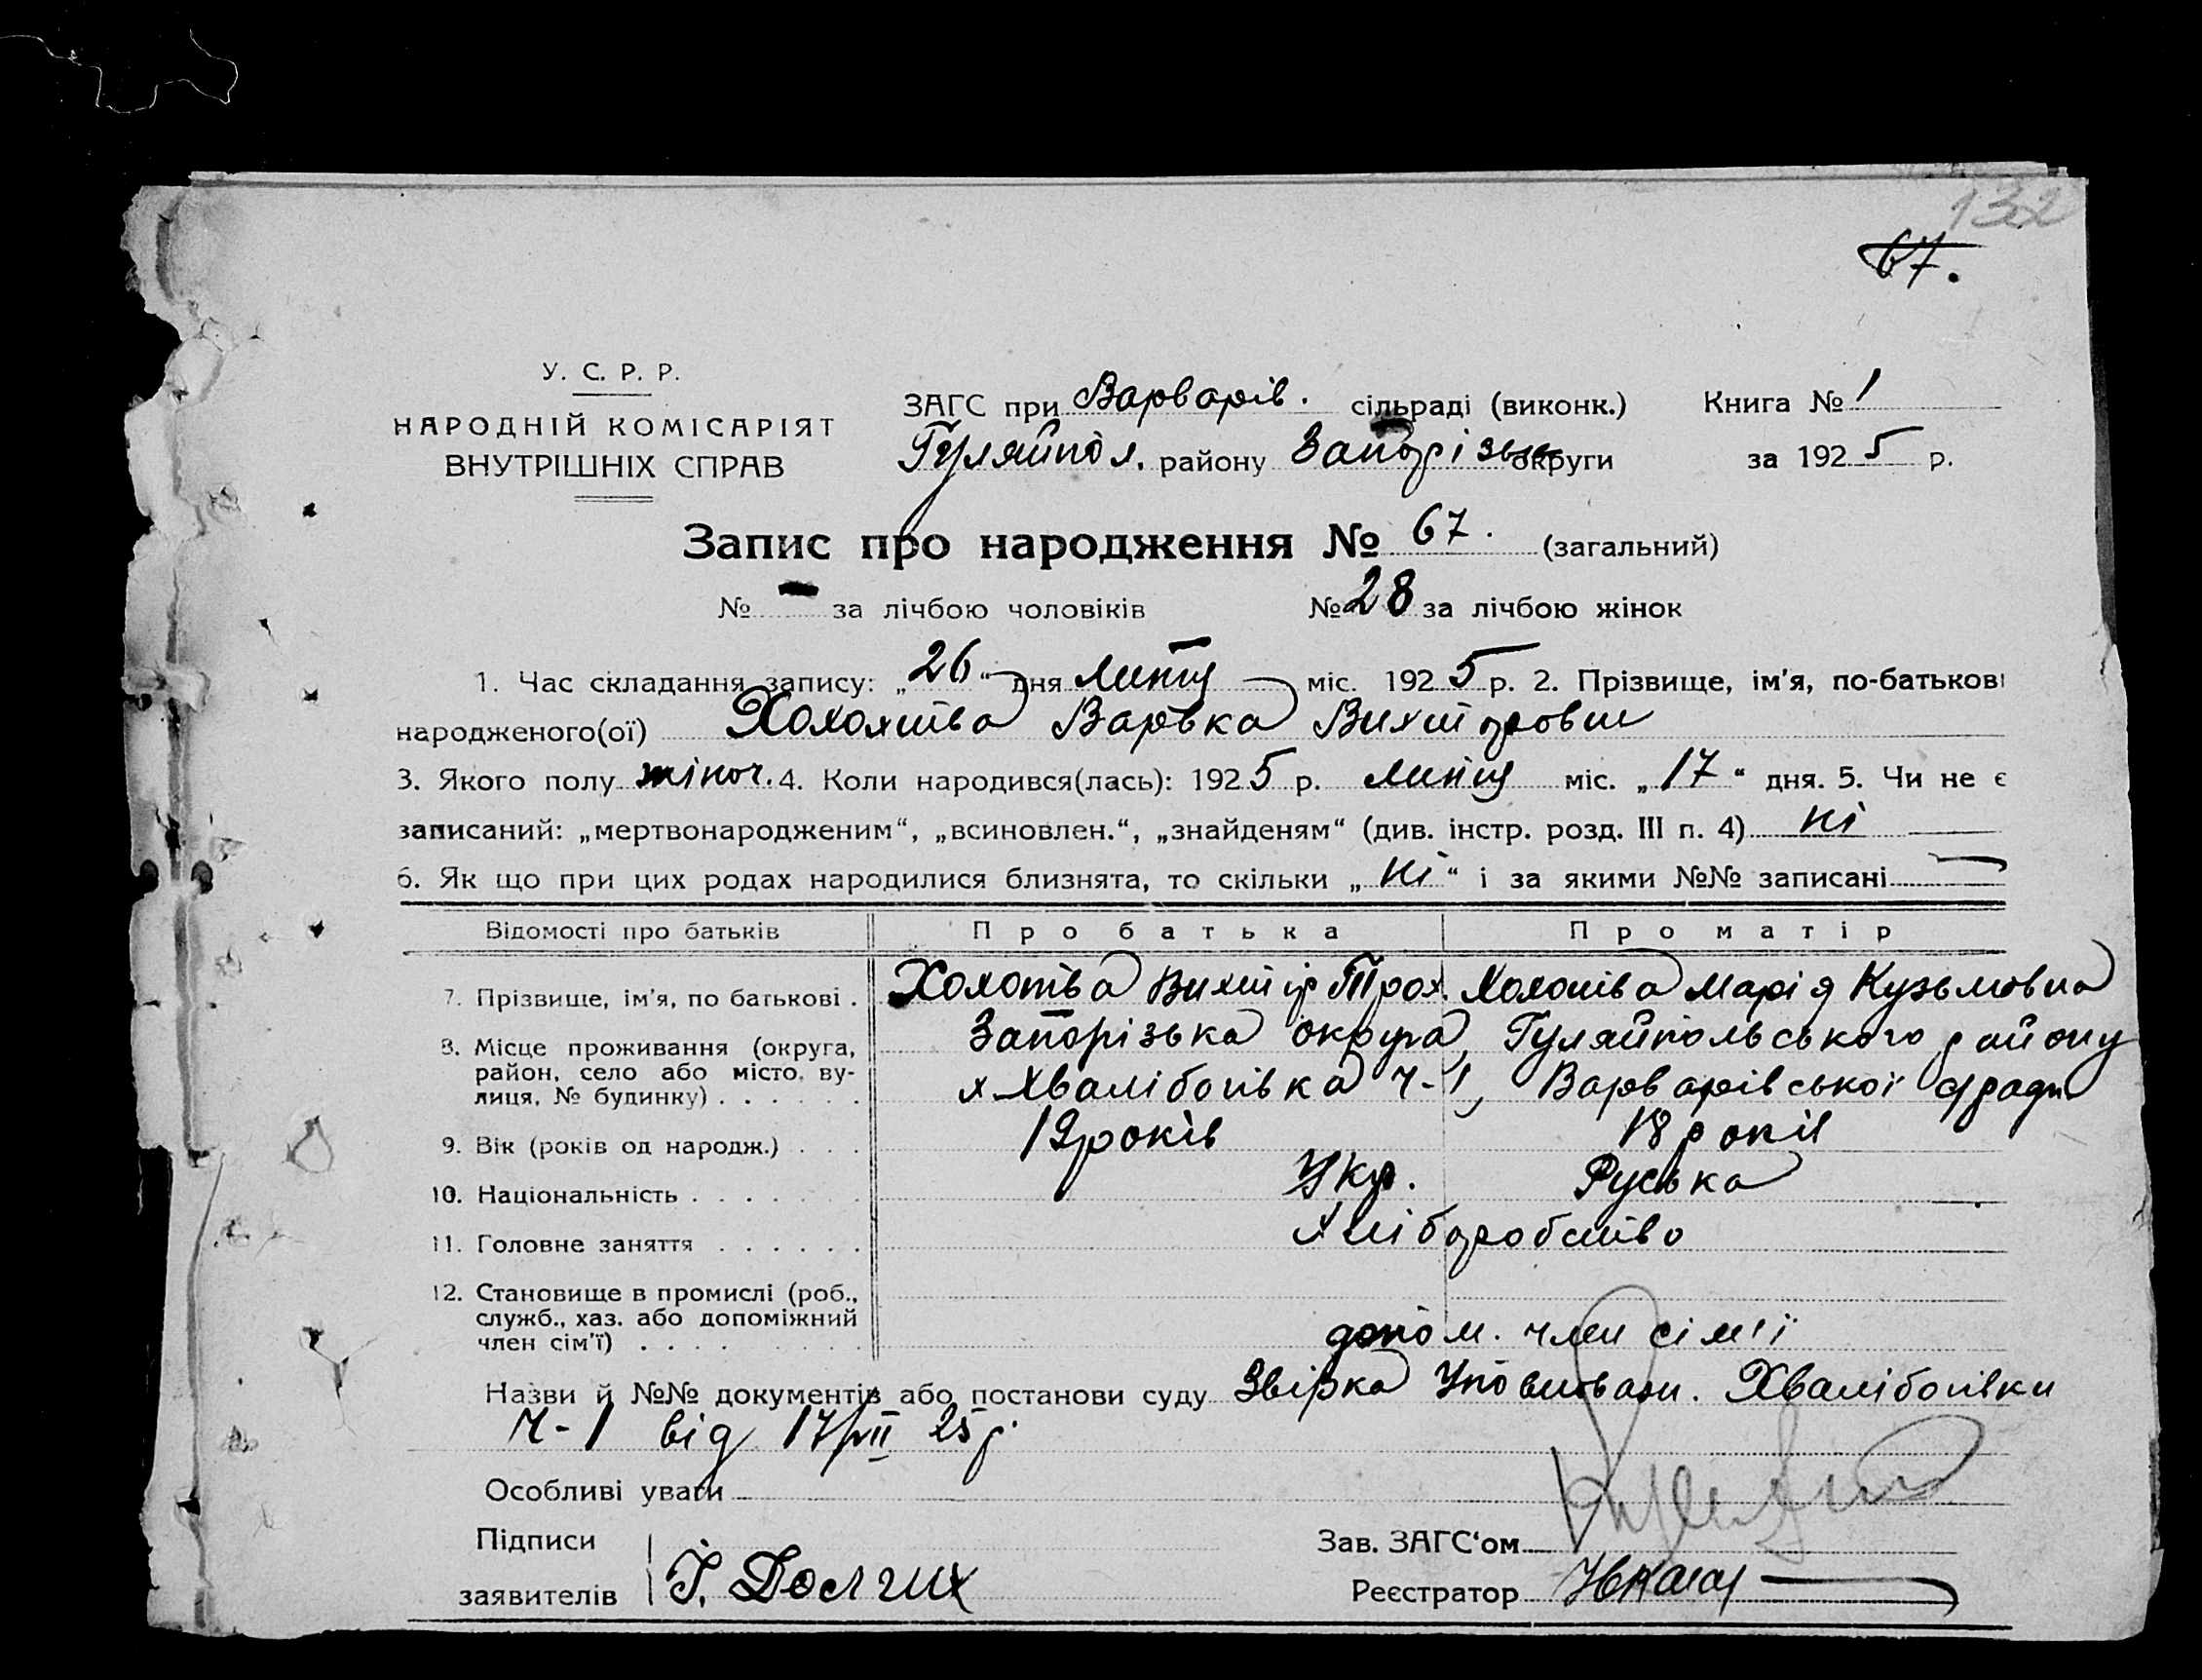 132
67.
У. С. Р. Р.
НАРОДНІЙ КОМІСАРІЯТ
ВНУТРІШНІХ СПРАВ
ЗАГС при Варварів. сільраді (виконк.) Книга № 1
Гуляйпол. району Запорізьк округи за 1925 р.
Запис про народження № 67. (загальний)
№ — за лічбою чоловіків № 28 за лічбою жінок
1. Час складання запису: „26“ дня лютц міс. 1925 р. 2. Прізвище, ім'я, по-батькові
народженого(ої) Варвка
3. Якого полу жіноч. 4. Коли народився(лась): 1925 р. лютц міс. „17“ дня. 5. Чи не є
записаний: „мертвонародженим“, „всиновлен.“, „знайденям“ (див. інстр. розд. III п. 4) ні
6. Як що при цих родах народилися близнята, то скільки „ні“ і за якими №№ записані —
Відомості про батьків Про батька Про матір
7. Прізвище, ім'я, по батькові . Холотва Трох. Холотва Марія Кузьмовна
8. Місце проживання (округа, район, село або місто, вулиця, № будинку) . . . . . . Запорізька округа, Гуляйпольського району
х Хвалібогівка Ч-1, Варварівської с/ради
9. Вік (років од народж.) . . . 19 років 18 років
10. Національність . . . . . . . Укр. Руська
11. Головне заняття . . . . . . Хліборобство
12. Становище в промислі (роб., служб., хаз. або допоміжний член сім'ї) . . . . допом. член сім'ї
Назви й №№ документів або постанови суду Звірка Уповноваж. Хвалібогівки
Ч-1 від 17/VII 25 р.
Особливі уваги
Підписи Зав. ЗАГС'ом
заявителів І. Долгих Реєстратор